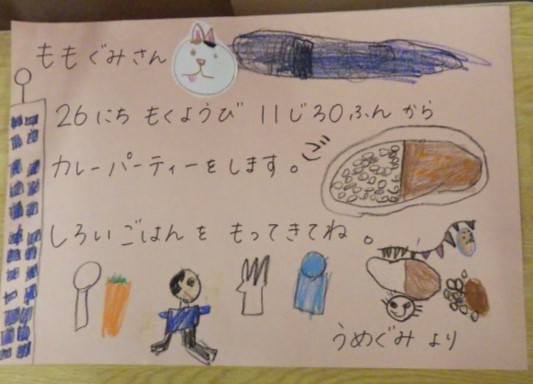 ももぐみさん
26にち もくようび 11じ30ぷんから
カレーパーティーをします。
しろいごはんを もってきてね。
うめぐみより